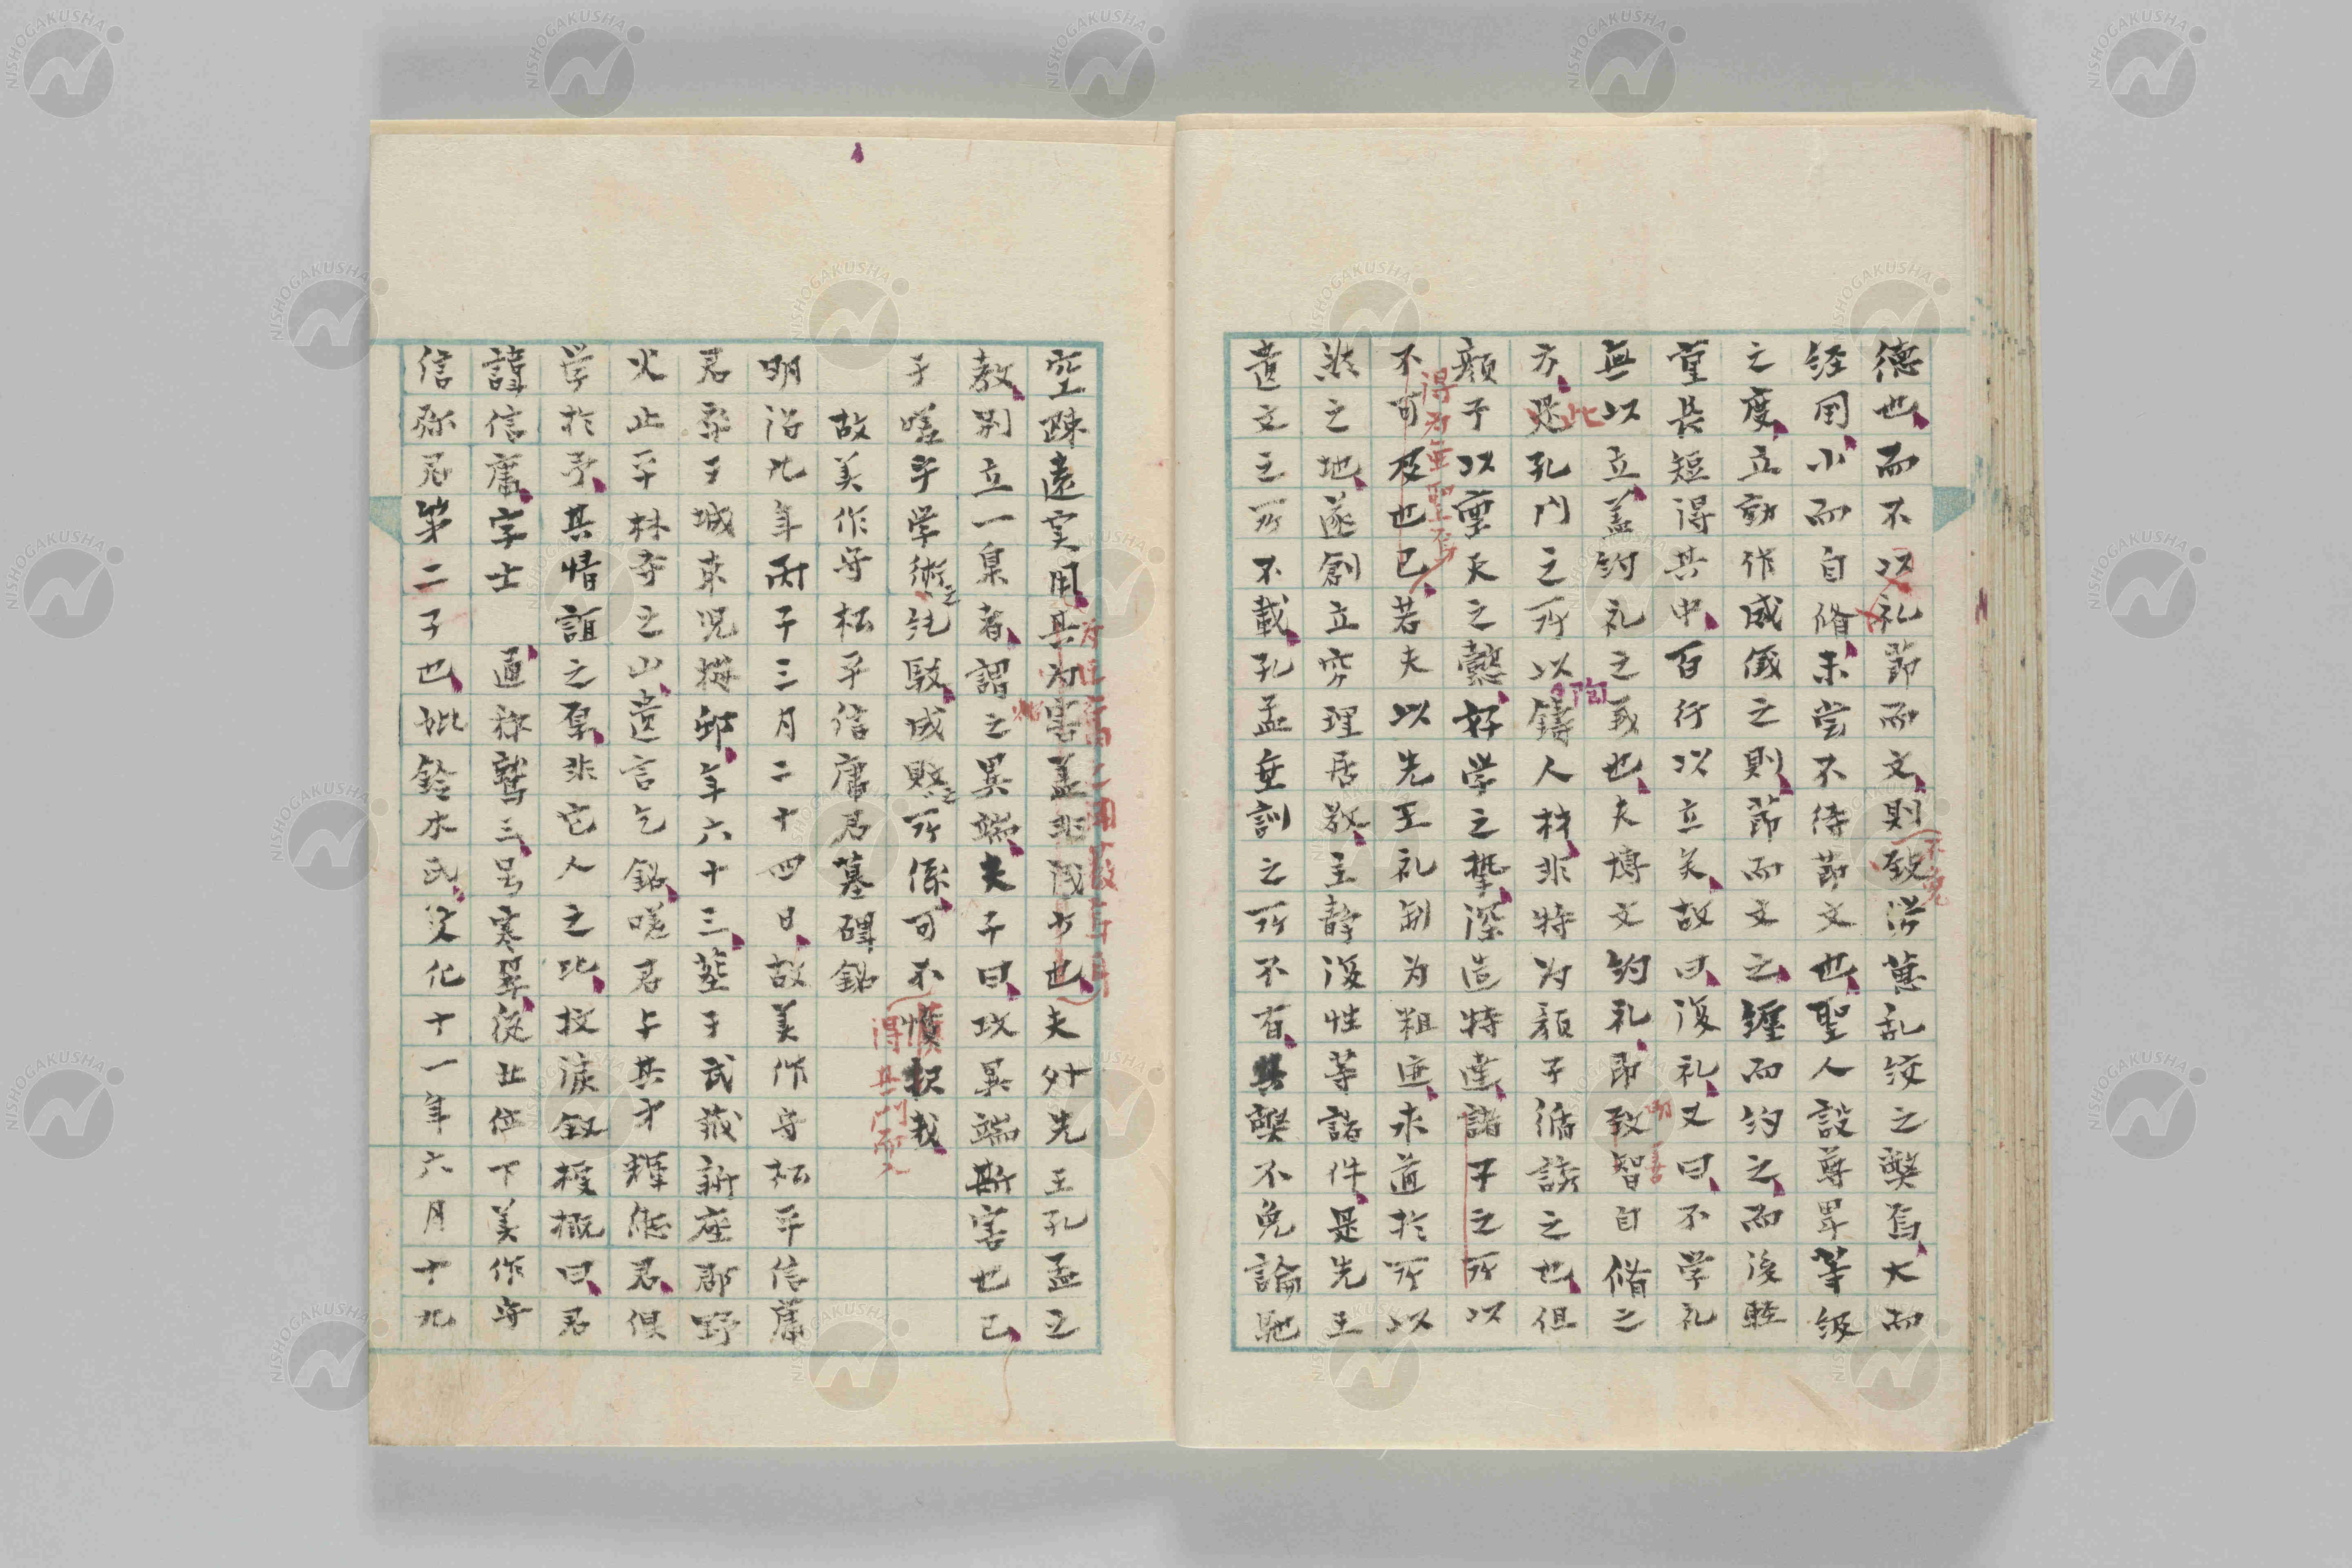 德也而不以礼節而文則致葸乱絞之獘焉大而
経用小而自脩未甞不待節文也聖人設尊卑等級
之度立動作威儀之則節而文之纏而約之而後軽
重長短得其中百行以立矣故曰復礼又曰不学礼
無以立盖約礼之義也夫博文約礼即致智自脩之
方是孔門之所以鑄人材非特為顔子循誘之也但
顔子以亜夫之懿好学之摯深造特達諸子之所以
不可及也已若夫以先王礼制為粗迹求道於所以
然之地遂創立窮理居敬主静復性等諸件是先王
遺文之所不載孔孟垂訓之所不有其獘不免論馳
空疎遠実用其為害盖非浅少也夫外先王孔孟之
教別立一臬者謂之異端夫子曰攻異端斯害也已
于嗟乎学術之純駁成敗之所係可不慎択哉
故美作守松平信庸君墓碑銘
明治九年丙子三月二十四日故美作守松平信庸
君卒于城東児梅邨年六十三塟于武蔵新座郡野
火止平林寺之山遺言乞銘嗟君与其才輝能君俱
学於予其情誼之厚非它人之比抆涙叙梗概曰君
諱信庸字士 通称鷲三号寒翠従五位下美作守
信弥君第二子也妣鈴木氏文化十一年六月十九
不免
此
陶
明善
得為亜聖焉
得其門而入
NISHOGAKUSHA